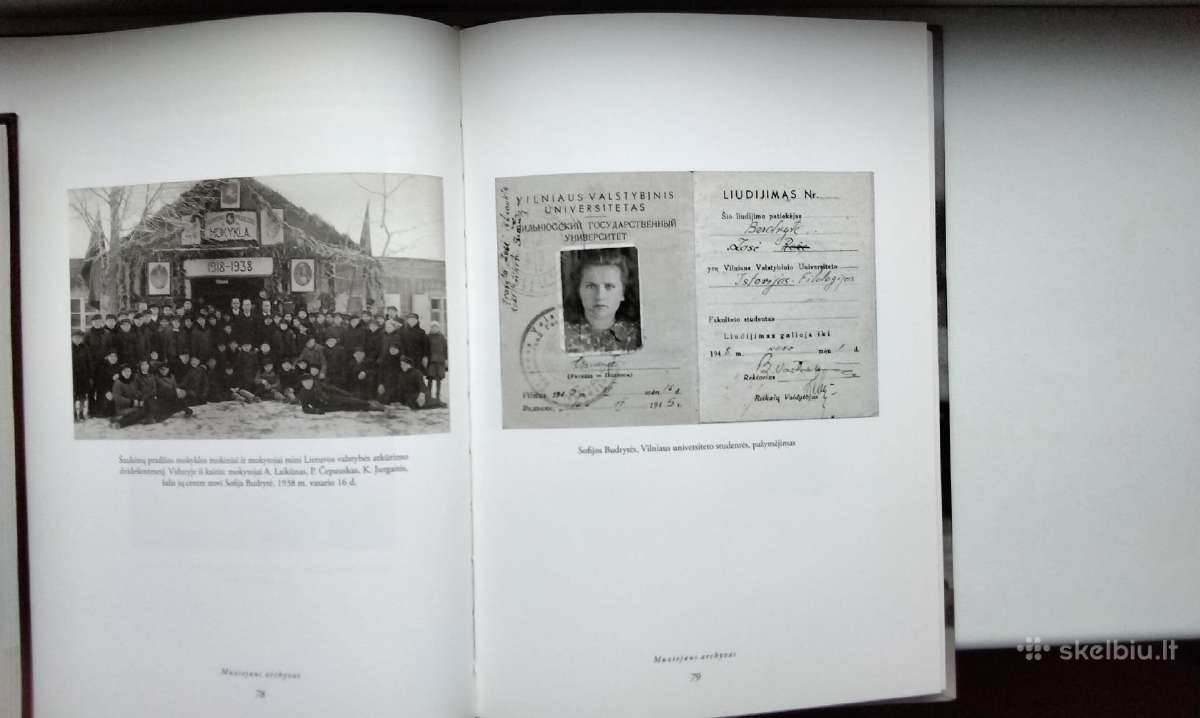 MOKYKLA
1918-1938
Šaukėnų pradžios mokyklos mokiniai ir mokytojai mini Lietuvos valstybės atkūrimo
dvidešimtmetį. Viduryje iš kairės: mokytojai A. Laikūnas, P. Čepauskas, K. Jurgaitis,
šalia jų centre stovi Sofija Budrytė, 1938 m. vasario 16 d.
Muziejaus archyvas
78
VILNIAUS VALSTYBINIS
UNIVERSITETAS
ВИЛЬНЮССКИЙ ГОСУДАРСТВЕННЫЙ
УНИВЕРСИТЕТ
LIUDIJIMAS Nr.
Šio liudijimo pateikėjas
yra Vilniaus Valstybinio Universiteto
Istorijos-Filologijos
Fakulteto studentas
Liudijimas galioja iki
194 m. mėn.
Rektorius
Reikalų Valdytojas
Sofijos Budrytės, Vilniaus universiteto studentės, pažymėjimas
Muziejaus archyvas
79
skelbiu.lt